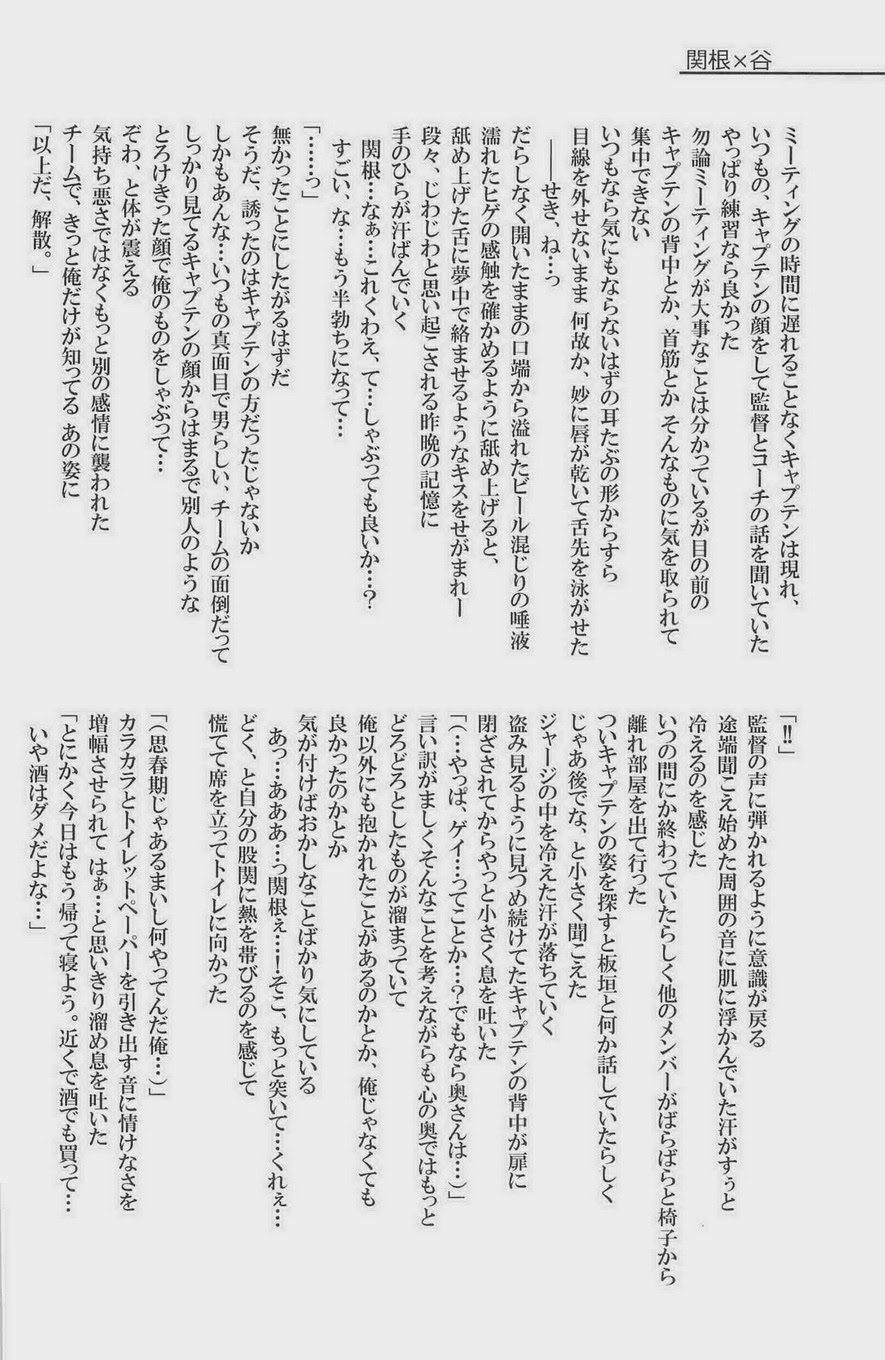 関根×谷
ミーティングの時間に遅れることなくキャプテンは現れ、
いつもの、キャプテンの顔をして監督とコーチの話を聞いていた
やっぱり練習なら良かった
勿論ミーティングが大事なことは分かっているが目の前の
キャプテンの背中とか、首筋とか そんなものに気を取られて
集中できない
いつもなら気にもならないはずの耳たぶの形からすら
目線を外せないまま 何故か、妙に唇が乾いて舌先を泳がせた
――せき、ね…っ
だらしなく開いたままの口端から溢れたビール混じりの唾液
濡れたヒゲの感触を確かめるように舐め上げると、
舐め上げた舌に夢中で絡ませるようなキスをせがまれ―
段々、じわじわと思い起こされる昨晩の記憶に
手のひらが汗ばんでいく
関根…なぁ…これくわえ、て…しゃぶっても良いか…?
すごい、な…もう半勃ちになって…
「……っ」
無かったことにしたがるはずだ
そうだ、誘ったのはキャプテンの方だったじゃないか
しかもあんな…いつもの真面目で男らしい、チームの面倒だって
しっかり見てるキャプテンの顔からはまるで別人のような
とろけきった顔で俺のものをしゃぶって…
ぞわ、と体が震える
気持ち悪さではなくもっと別の感情に襲われた
チームで、きっと俺だけが知ってる あの姿に
「以上だ、解散。」
「!!」
監督の声に弾かれるように意識が戻る
途端聞こえ始めた周囲の音に肌に浮かんでいた汗がすぅと
冷えるのを感じた
いつの間にか終わっていたらしく他のメンバーがばらばらと椅子から
離れ部屋を出て行った
ついキャプテンの姿を探すと板垣と何か話していたらしく
じゃあ後でな、と小さく聞こえた
ジャージの中を冷えた汗が落ちていく
盗み見るように見つめ続けてたキャプテンの背中が扉に
閉ざされてからやっと小さく息を吐いた
「(…やっぱ、ゲイ…ってことか…?でもなら奥さんは…)」
言い訳がましくそんなことを考えながらも心の奥ではもっと
どろどろとしたものが溜まっていて
俺以外にも抱かれたことがあるのかとか、俺じゃなくても
良かったのかとか
気が付けばおかしなことばかり気にしている
あっ…あああ…っ関根ぇ…！そこ、もっと突いて…くれぇ…
どく、と自分の股関に熱を帯びるのを感じて
慌てて席を立ってトイレに向かった
「(思春期じゃあるまいし何やってんだ俺…)」
カラカラとトイレットペーパーを引き出す音に情けなさを
増幅させられて はぁ…と思いきり溜め息を吐いた
「とにかく今日はもう帰って寝よう。近くで酒でも買って…
いや酒はダメだよな…」